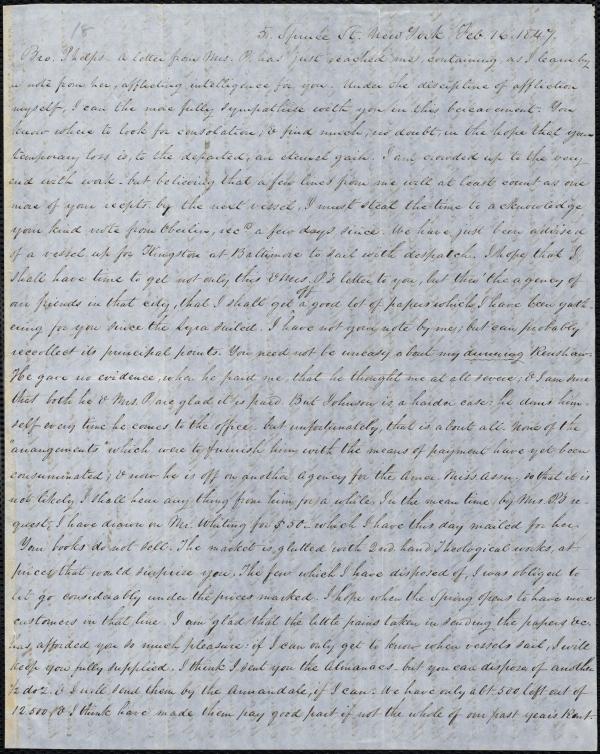 18
5. Spruce St. New York Feb. 16. 1847.
Bro. Phelps. A letter from Mrs. P. has just reached me, containing, as I learn by
a note from her, afflicting intelligence for you. Under the discipline of affliction
myself, I can the more fully sympathise with you in this bereavement. You
know where to look for consolation, & find much, no doubt, in the hope that your
temporary loss is, to the departed, an eternal gain. I am crowded up to the very
end with work - but believing that a few lines from me will at least count as one
more of your recpts. by the next vessel, I must steal the time to acknowledge
your kind note from Oberlin, rec'd a few days since. We have just been advised
of a vessel up for Kingston at Baltimore to sail with despatch. I hope that I
shall have time to get not only this & Mrs. P's letter to you, but thro' the agency of
our friends in that city, that I shall get off a good lot of papers which I have been gath-
ering for you since the Lyra sailed. I have not your note by me; but can probably
reccollect its principal points. You need not be uneasy about my dunning Renshaw.
He gave no evidence, when he paid me, that he thought me at all severe; & I am sure
that both he & Mrs. P. are glad it is paid. But Johnson is a harder case: he duns him-
self every time he comes to the office. but unfortunately, that is about all. None of the
"arrangements" which were to furnish him with the means of payment have yet been
consummated; & now he is off on another agency for the Amer. Miss. Assn. so that it is
not likely I shall hear any thing from him for a while. In the mean time, by Mrs. P's re-
quest, I have drawn on Mr. Whiting for $50. which I have this day mailed for her.
Your books do not sell. The market is glutted with 2nd. hand Theological works, at
prices that would surprise you. The few which I have disposed of, I was obliged to
let go considerably under the prices marked. I hope when the Spring opens to have more
customers in that line. I am glad that the little pains taken in sending the papers &c.
has afforded you so much pleasure: if I can only get to know when vessels sail, I will
keep you fully supplied. I think I sent you the almanacs. but you can dispose of another
1/2 doz. & I will send them by the Annandale, if I can. We have only abt. 500 left out of
12.500 & I think have made them pay good part if not the whole of our past years Rent.